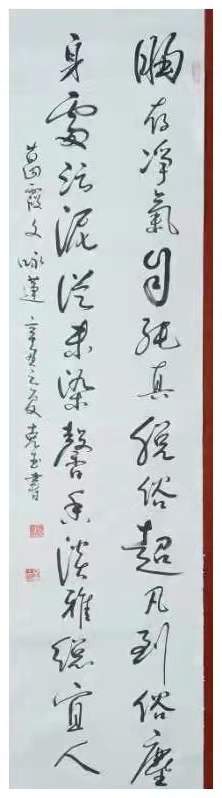 胸存净氣自純真脱俗超凡到俗塵
身處污泥從未染馨香淡雅總宜人
葛霞文咏蓮辛丑之夏克玉書